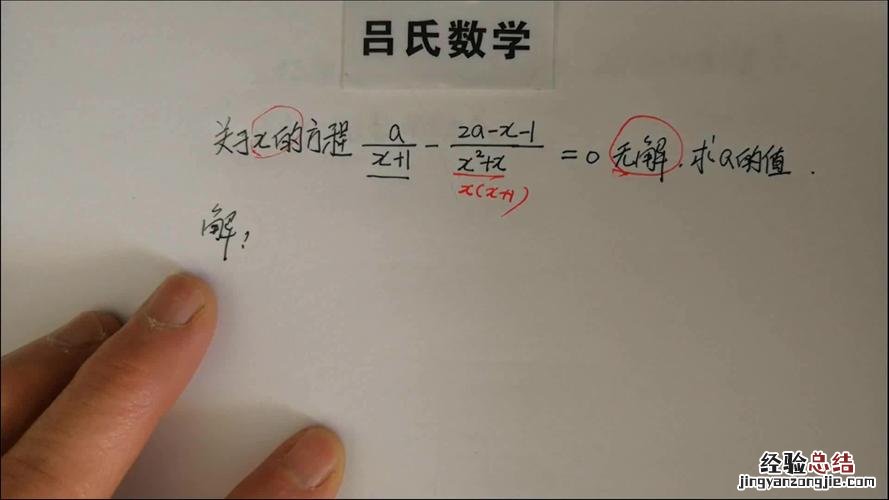 吕氏数学
关于x的方程 a/(x+1) - (2a-x-1)/(x²+x) = 0 无解. 求a的值.
x(x+1)
解:
经验总结
jingyanzongjie.com